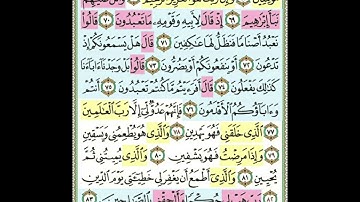 نَبَأَ إِبْرَٰهِيمَ ٦٩ إِذْ قَالَ لِأَبِيهِ وَقَوْمِهِۦ مَا تَعْبُدُونَ ٧٠ قَالُوا۟
نَعْبُدُ أَصْنَامًا فَنَظَلُّ لَهَا عَٰكِفِينَ ٧١ قَالَ هَلْ يَسْمَعُونَكُمْ إِذْ
تَدْعُونَ ٧٢ أَوْ يَنفَعُونَكُمْ أَوْ يَضُرُّونَ ٧٣ قَالُوا۟ بَلْ وَجَدْنَآ ءَابَآءَنَا
كَذَٰلِكَ يَفْعَلُونَ ٧٤ قَالَ أَفَرَءَيْتُم مَّا كُنتُمْ تَعْبُدُونَ ٧٥ أَنتُمْ
وَءَابَآؤُكُمُ ٱلْأَقْدَمُونَ ٧٦ فَإِنَّهُمْ عَدُوٌّ لِّىٓ إِلَّا رَبَّ ٱلْعَٰلَمِينَ
٧٧ ٱلَّذِى خَلَقَنِى فَهُوَ يَهْدِينِ ٧٨ وَٱلَّذِى هُوَ يُطْعِمُنِى وَيَسْقِينِ
٧٩ وَإِذَا مَرِضْتُ فَهُوَ يَشْفِينِ ٨٠ وَٱلَّذِى يُمِيتُنِى ثُمَّ
يُحْيِينِ ٨١ وَٱلَّذِىٓ أَطْمَعُ أَن يَغْفِرَ لِى خَطِيٓـَٔتِى يَوْمَ ٱلدِّينِ